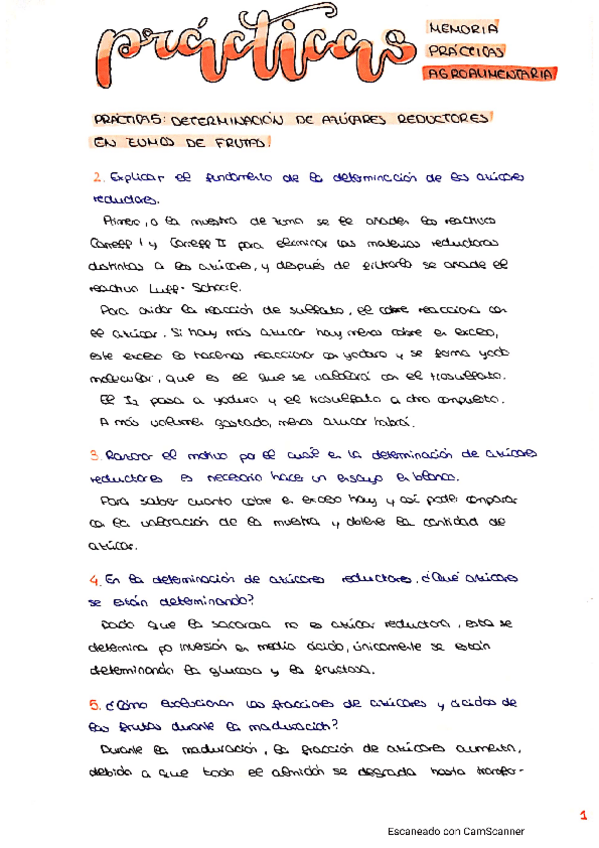 prácticas
MEMORIA
PRÁCTICAS
AGROALIMENTARIA
PRÁCTICA 5: DETERMINACIÓN DE AZÚCARES REDUCTORES
EN ZUMOS DE FRUTAS.
2. Explicar el fundamento de la determinación de los azúcares
reductores.
Primero, a la muestra de zuma se le añaden los reactivos
Carreff I y Carreff II para eliminar las materias reductoras
distintas a los azúcares, y después de filtrarlo se añade el
reactivo Luff-Schorl.
Para oxidar la reacción de sulfato, el cobre reacciona con
el azúcar. Si hay más azucar hay menos cobre en exceso,
este exceso lo hacemos reaccionar con yoduro y se forma yodo
molecular, que es el que se valorará con el tiosulfato.
El I₂ pasa a yoduro y el tiosulfato a otro compuesto.
A más volumen gastado, menos azucar habrá.
3. Razonar el motivo por el cual en la determinación de azúcares
reductores es necesario hacer un ensayo en blanco.
Para saber cuanto cobre en exceso hay y así poder comparar
con la valoración de la muestra y obtener la cantidad de
azúcar.
4. En la determinación de azúcares reductores, ¿Qué azúcares
se están determinando?
Dado que la sacarosa no es azúcar reductora, esta se
determina por inversión en medio ácido, únicamente se están
determinando la glucosa y la fructosa.
5. ¿Cómo evolucionan las fracciones de azúcares y ácidos de
las frutas durante la maduración?
Durante la maduración, la fracción de azúcares aumenta,
debido a que todo el almidón se degrada hasta transfor-
1
Escaneado con CamScanner